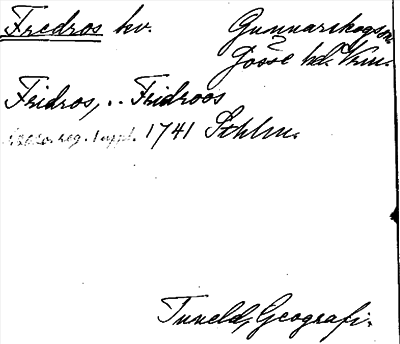 Fredros kv. Gunnarskogs sn.
Jösse hd. Vrm.
Fridros, .. Fridroos
1741 Sthlm.
Tuneld, Geografi.